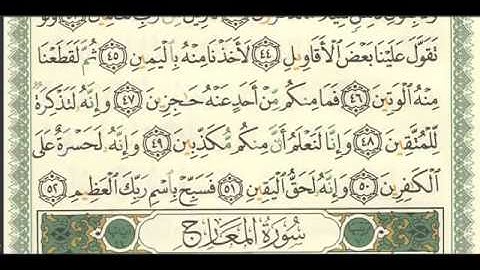 تَنزِيلٌ مِّن رَّبِّ ٱلْعَٰلَمِينَ ۝٤٣ وَلَوْ
تَقَوَّلَ عَلَيْنَا بَعْضَ ٱلْأَقَاوِيلِ ۝٤٤ لَأَخَذْنَا مِنْهُ بِٱلْيَمِينِ ۝٤٥ ثُمَّ لَقَطَعْنَا
مِنْهُ ٱلْوَتِينَ ۝٤٦ فَمَا مِنكُم مِّنْ أَحَدٍ عَنْهُ حَٰجِزِينَ ۝٤٧ وَإِنَّهُۥ لَتَذْكِرَةٌ
لِّلْمُتَّقِينَ ۝٤٨ وَإِنَّا لَنَعْلَمُ أَنَّ مِنكُم مُّكَذِّبِينَ ۝٤٩ وَإِنَّهُۥ لَحَسْرَةٌ عَلَى
ٱلْكَٰفِرِينَ ۝٥٠ وَإِنَّهُۥ لَحَقُّ ٱلْيَقِينِ ۝٥١ فَسَبِّحْ بِٱسْمِ رَبِّكَ ٱلْعَظِيمِ ۝٥٢
سُورَةُ المَعَارِجِ